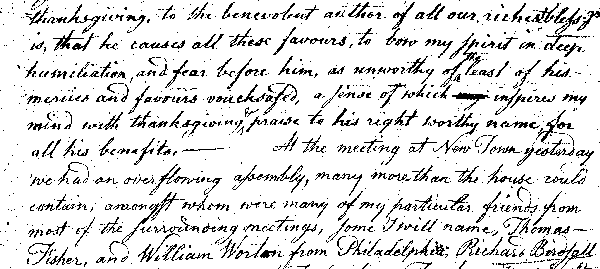 thanksgiving, to the benevolent author of all our richest blessgs
is, that he causes all these favours, to bow my spirit in deep
humiliation, and fear before him, as unworthy of the least of his
mercies and favours vouchsafed, a sense of which inspires my
mind with thanksgiving, praise to his right worthy name, for
all his benefits. — At the meeting at New Town yesterday
we had an overflowing assembly, many more than the house could
contain; amongst whom were many of my particular friends from
most of the surrounding meetings, some I will name, Thomas
Fisher, and William from Philadelphia, Richard Birdsall